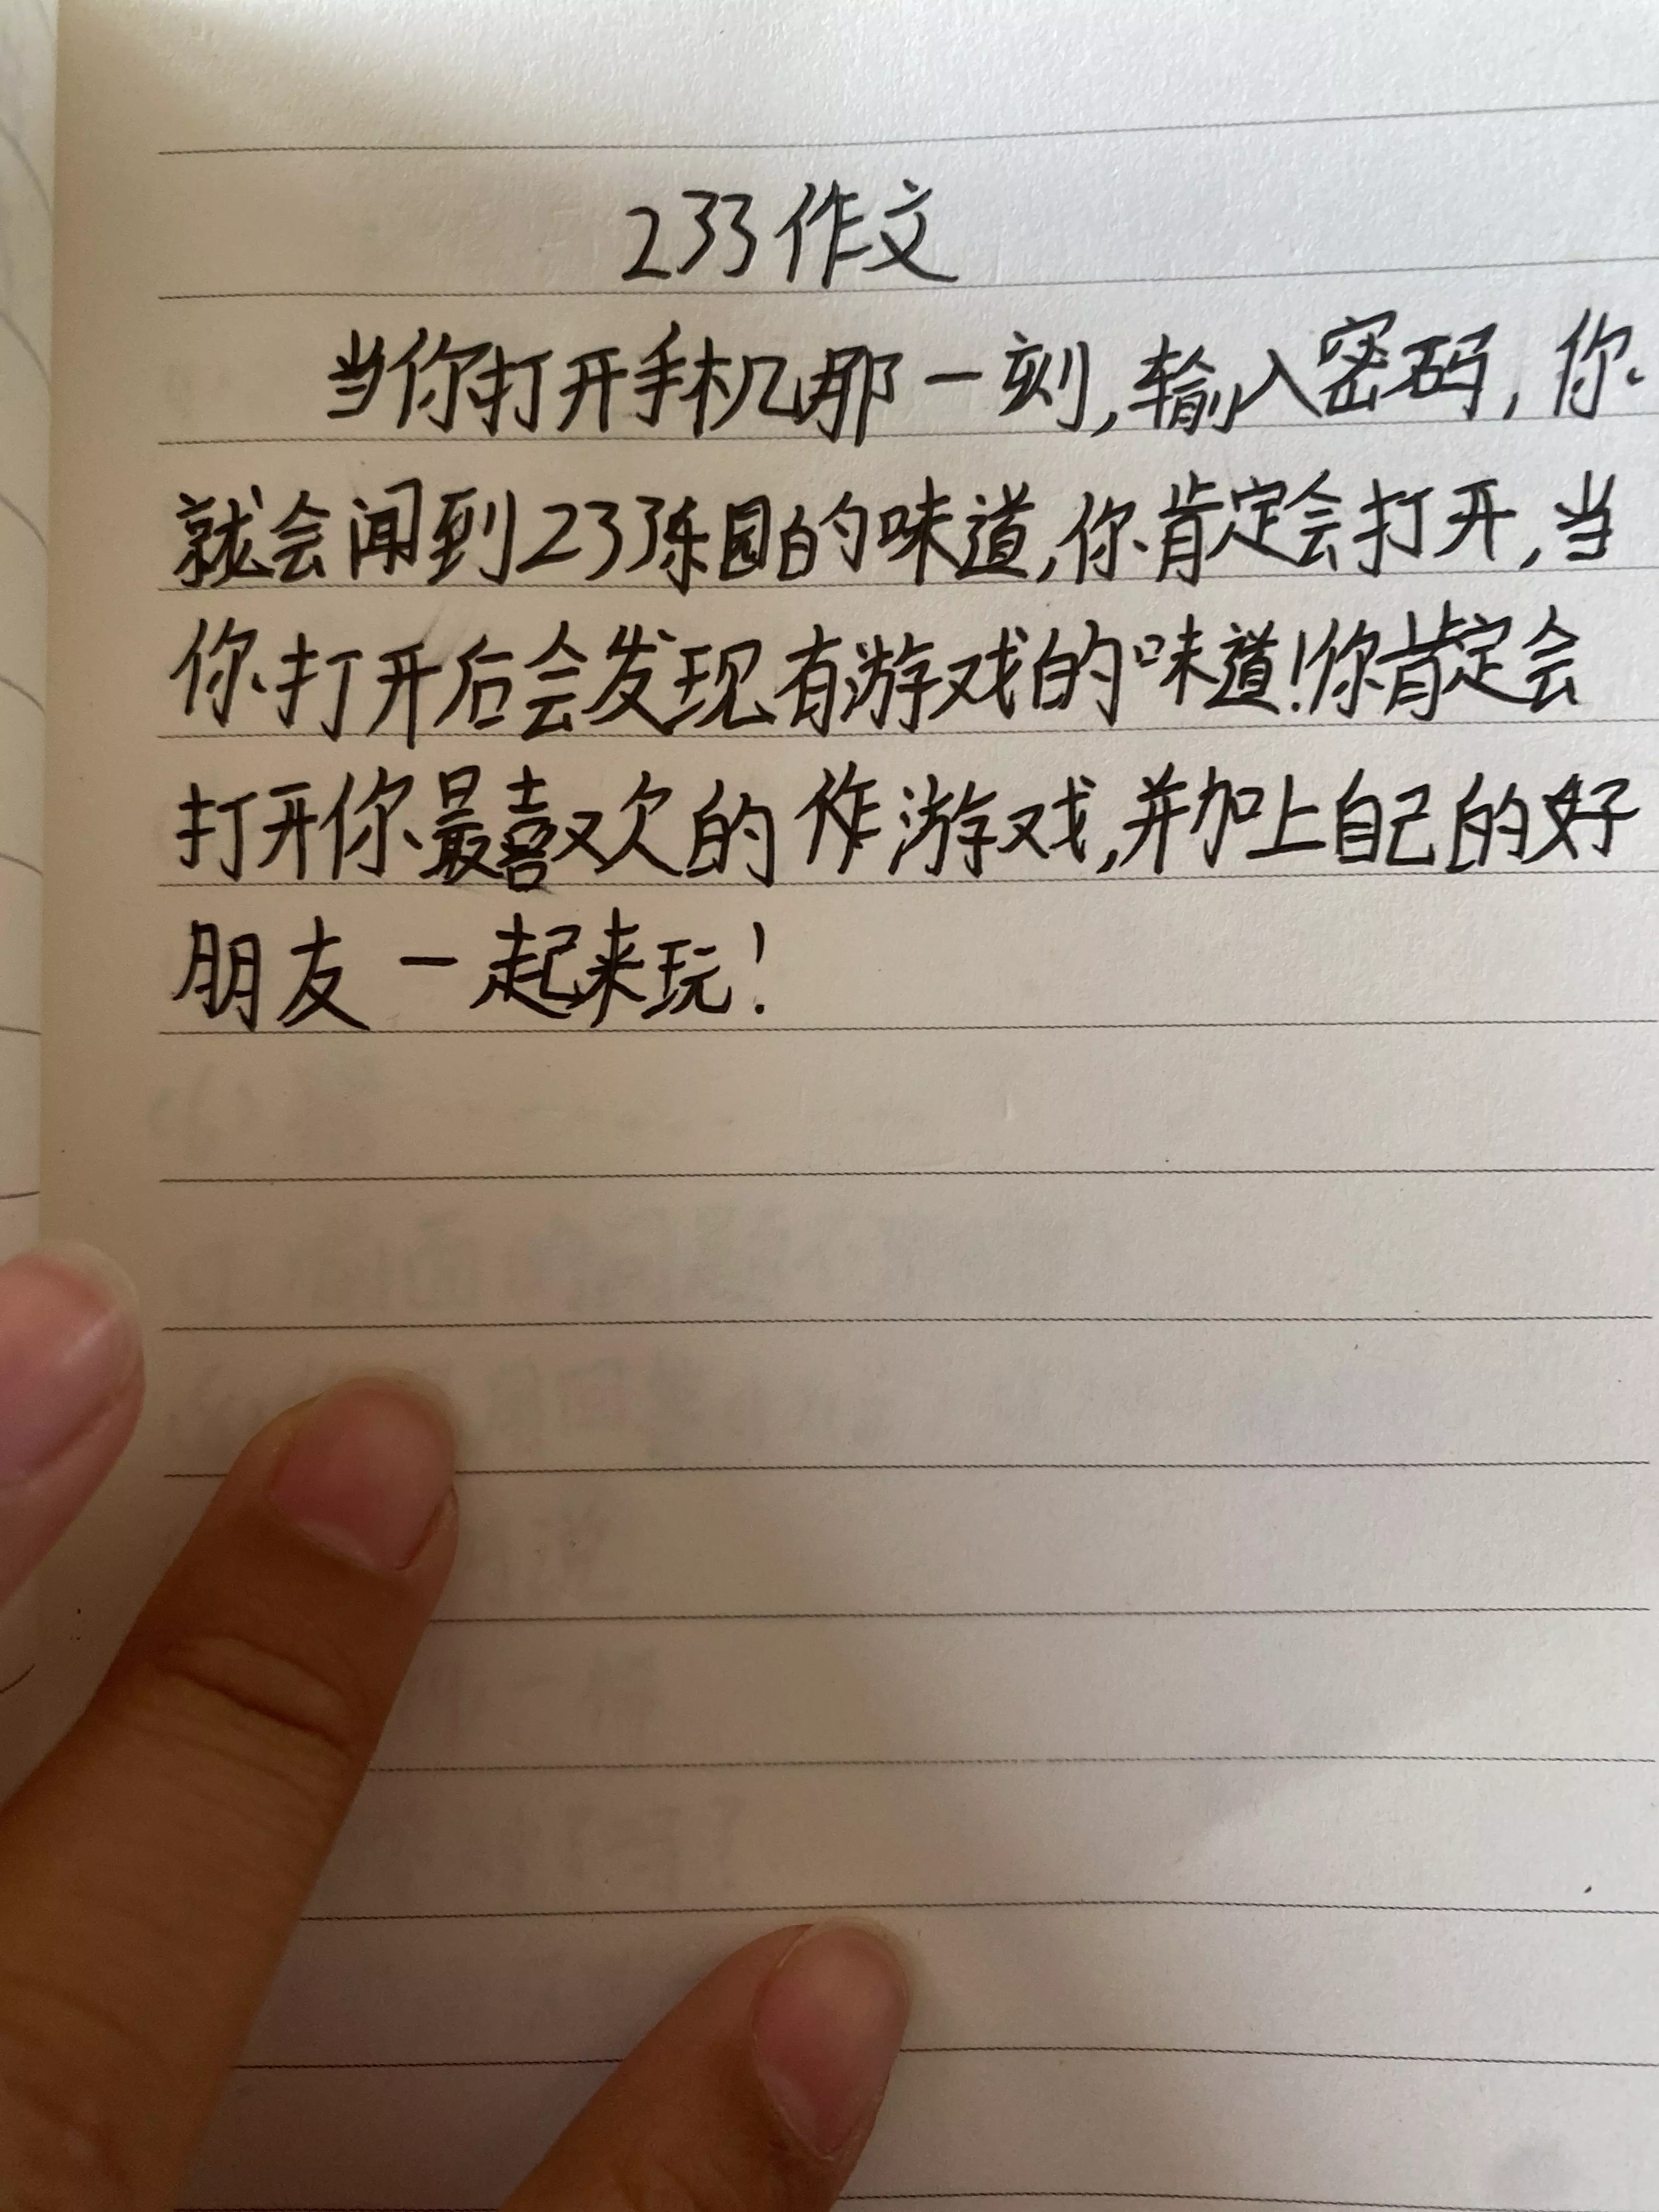 233作文
当你打开手机那一刻,输入密码,你
就会闻到233乐园的味道,你肯定会打开,当
你打开后会发现有游戏的味道!你肯定会
打开你最喜欢的作游戏,并加上自己的好
朋友一起来玩!